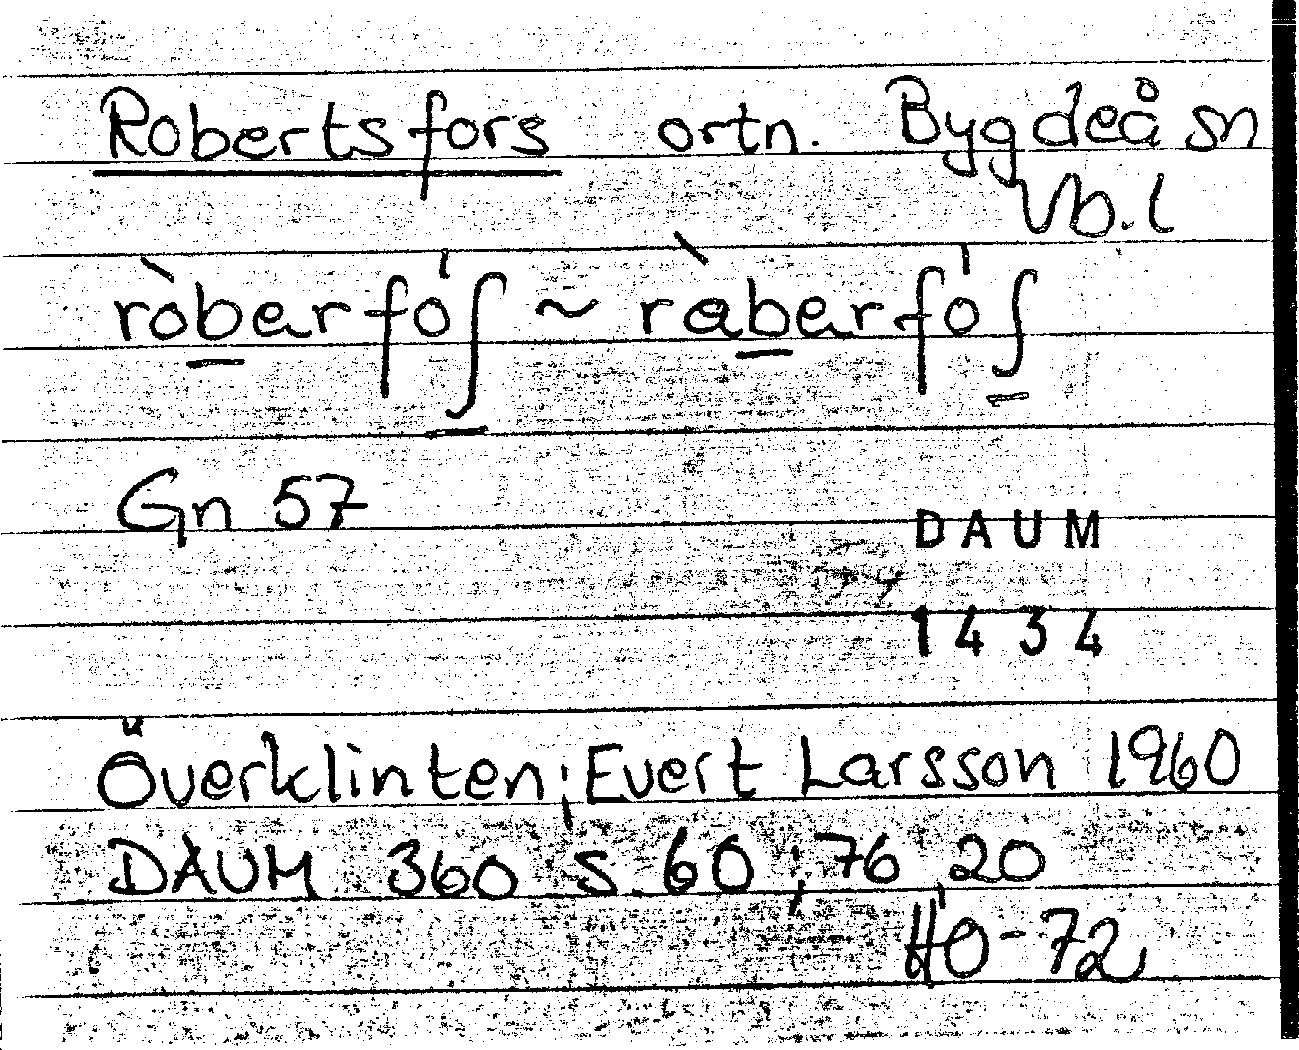 Robertsfors ortn. Bygdeå sn
Vb. l
ròberfóʃ ~ ràberfóʃ
Gn 57
DAUM
1434
Överklinten; Evert Larsson 1960
DAUM 360 s. 60; 76, 20
HO-72